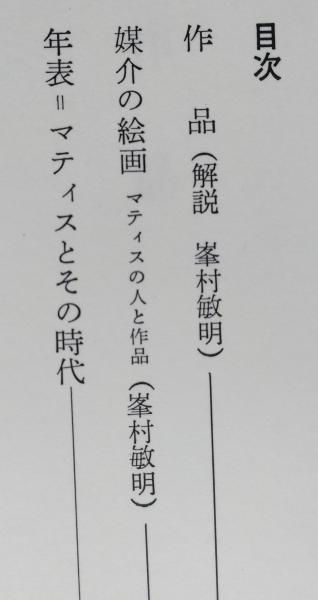 目次
作　品（解説　峯村敏明）
媒介の絵画 マティスの人と作品（峯村敏明）
年表＝マティスとその時代